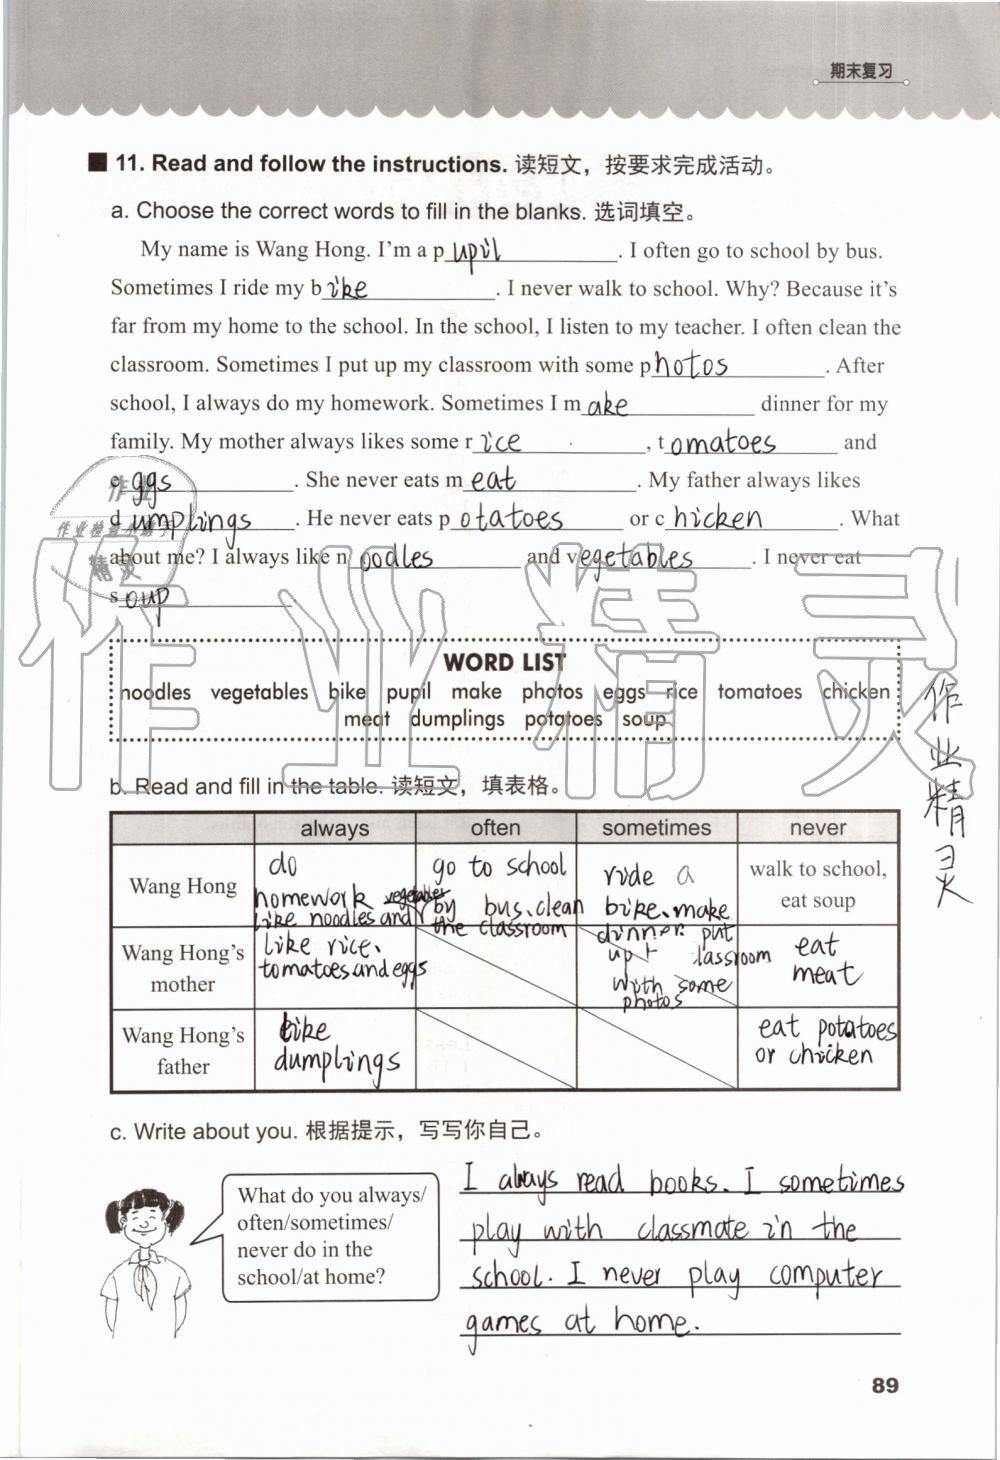 期末复习
11. Read and follow the instructions. 读短文，按要求完成活动。
a. Choose the correct words to fill in the blanks. 选词填空。
My name is Wang Hong. I'm a pupil. I often go to school by bus.
Sometimes I ride my bike. I never walk to school. Why? Because it's
far from my home to the school. In the school, I listen to my teacher. I often clean the
classroom. Sometimes I put up my classroom with some photos. After
school, I always do my homework. Sometimes I make dinner for my
family. My mother always likes some rice, tomatoes and
eggs. She never eats meat. My father always likes
dumplings. He never eats potatoes or chicken. What
about me? I always like noodles and vegetables. I never eat
soup
WORD LIST
noodles vegetables bike pupil make photos eggs rice tomatoes chicken
meat dumplings potatoes soup
b. Read and fill in the table. 读短文，填表格。
always often sometimes never
Wang Hong
do
homework vegetables
like noodles and
go to school
by bus、clean
the classroom
ride a
bike、make
dinner put
up classroom
with some
photos
walk to school,
eat soup
Wang Hong's
mother
like rice、
tomatoes and eggs
eat
meat
Wang Hong's
father
like
dumplings
eat potatoes
or chicken
c. Write about you. 根据提示，写写你自己。
What do you always/
often/sometimes/
never do in the
school/at home?
I always read books. I sometimes
play with classmate in the
school. I never play computer
games at home.
89
作业精灵
作业
作业检查小助手
精灵
作业精灵